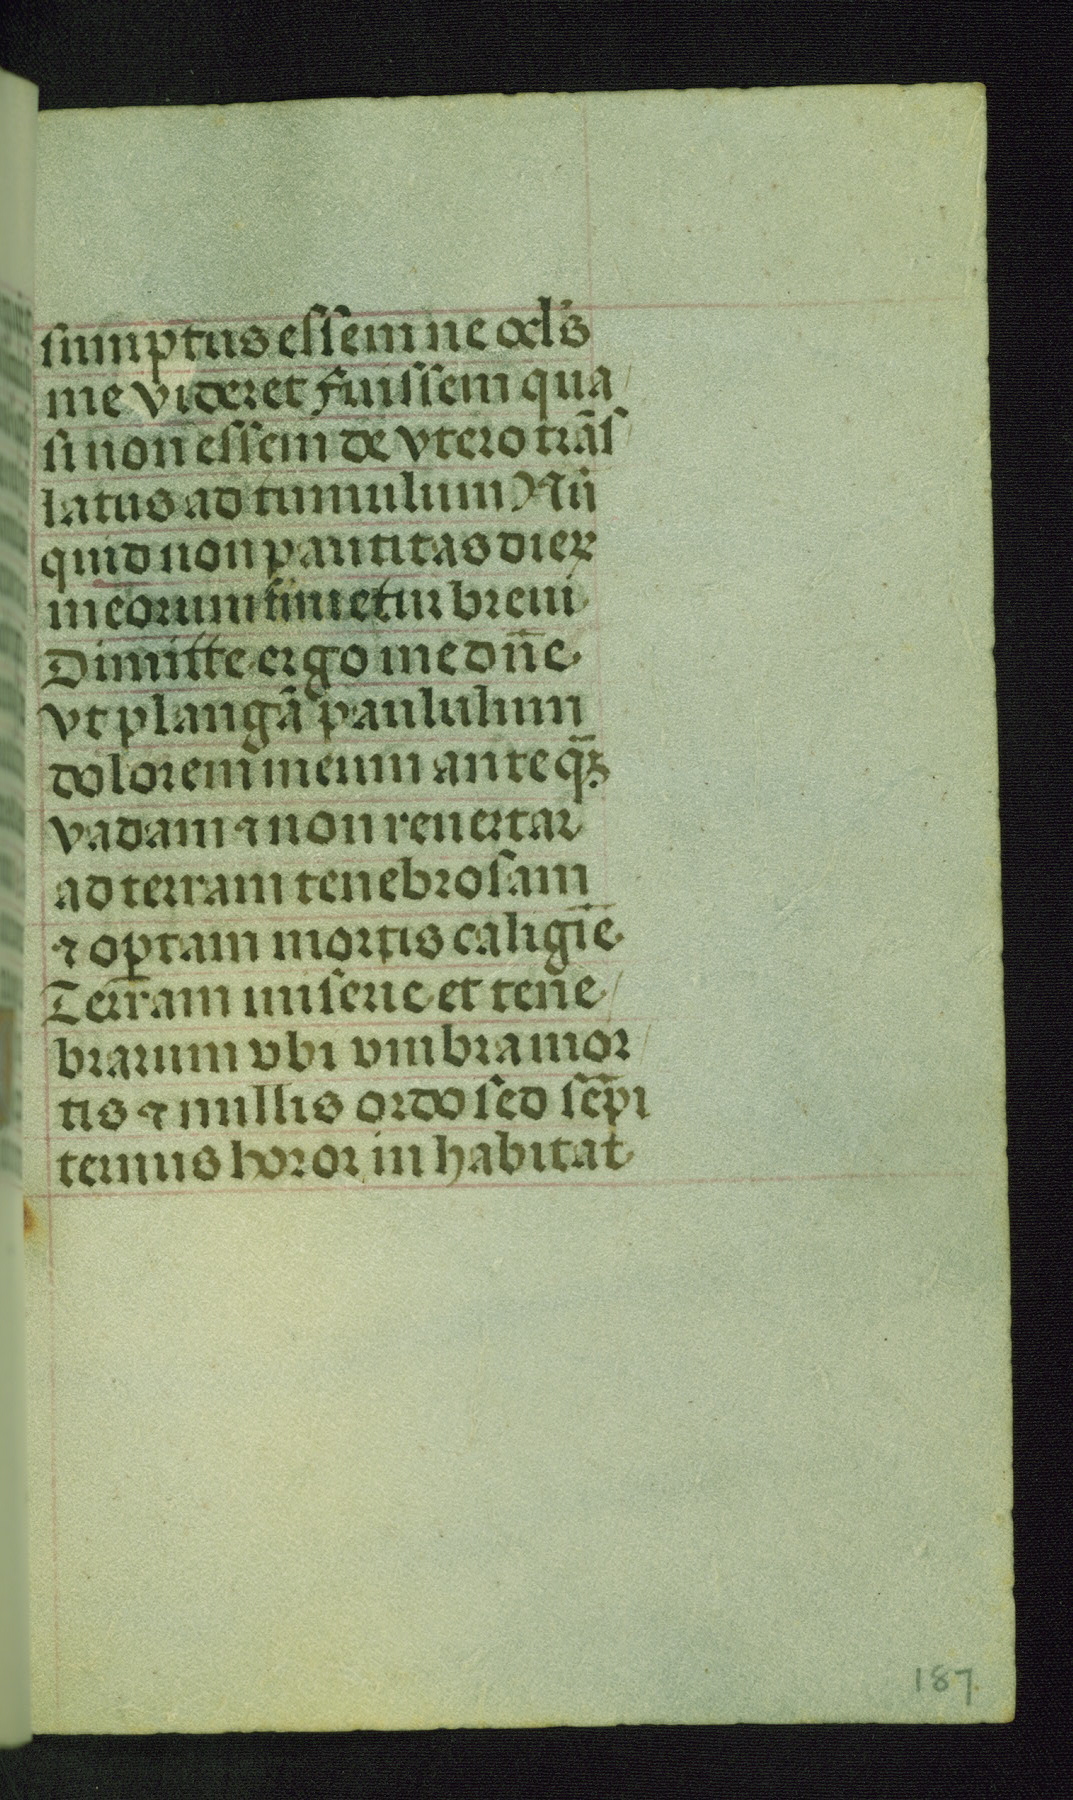 sumptus essem ne ocľs
me videret fuissem qua/
si non essem de vtero trās/
latus ad tumulum Nū
quid non pautitas dieꝝ
meorum finietur breui
Dimitte ergo me dn̄e
vt plangā paululum
dolorem meum ante qꝫ̄
vadam ⁊ non reuertar
ad terram tenebrosam
⁊ optam mortis caligīe
Terram miserie et tene/
brarum vbi vmbra mor/
tis ⁊ nullis ordo sed sēpi
ternus horor in habitat
187